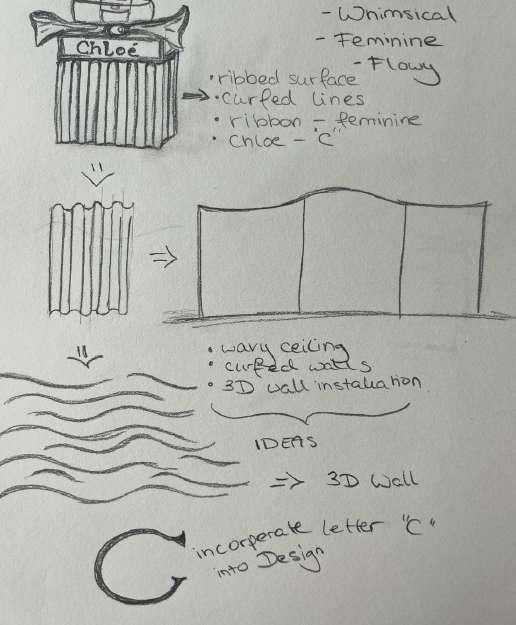 - Whimsical
- Feminine
- Flowy
Chloé
• ribbed surface
• curfed lines
• ribbon - feminine
• Chloe - "C"
• wavy ceiling
• curfed walls
• 3D wall installation
IDEAS
=> 3D Wall
incorperate Letter "C"
into Design